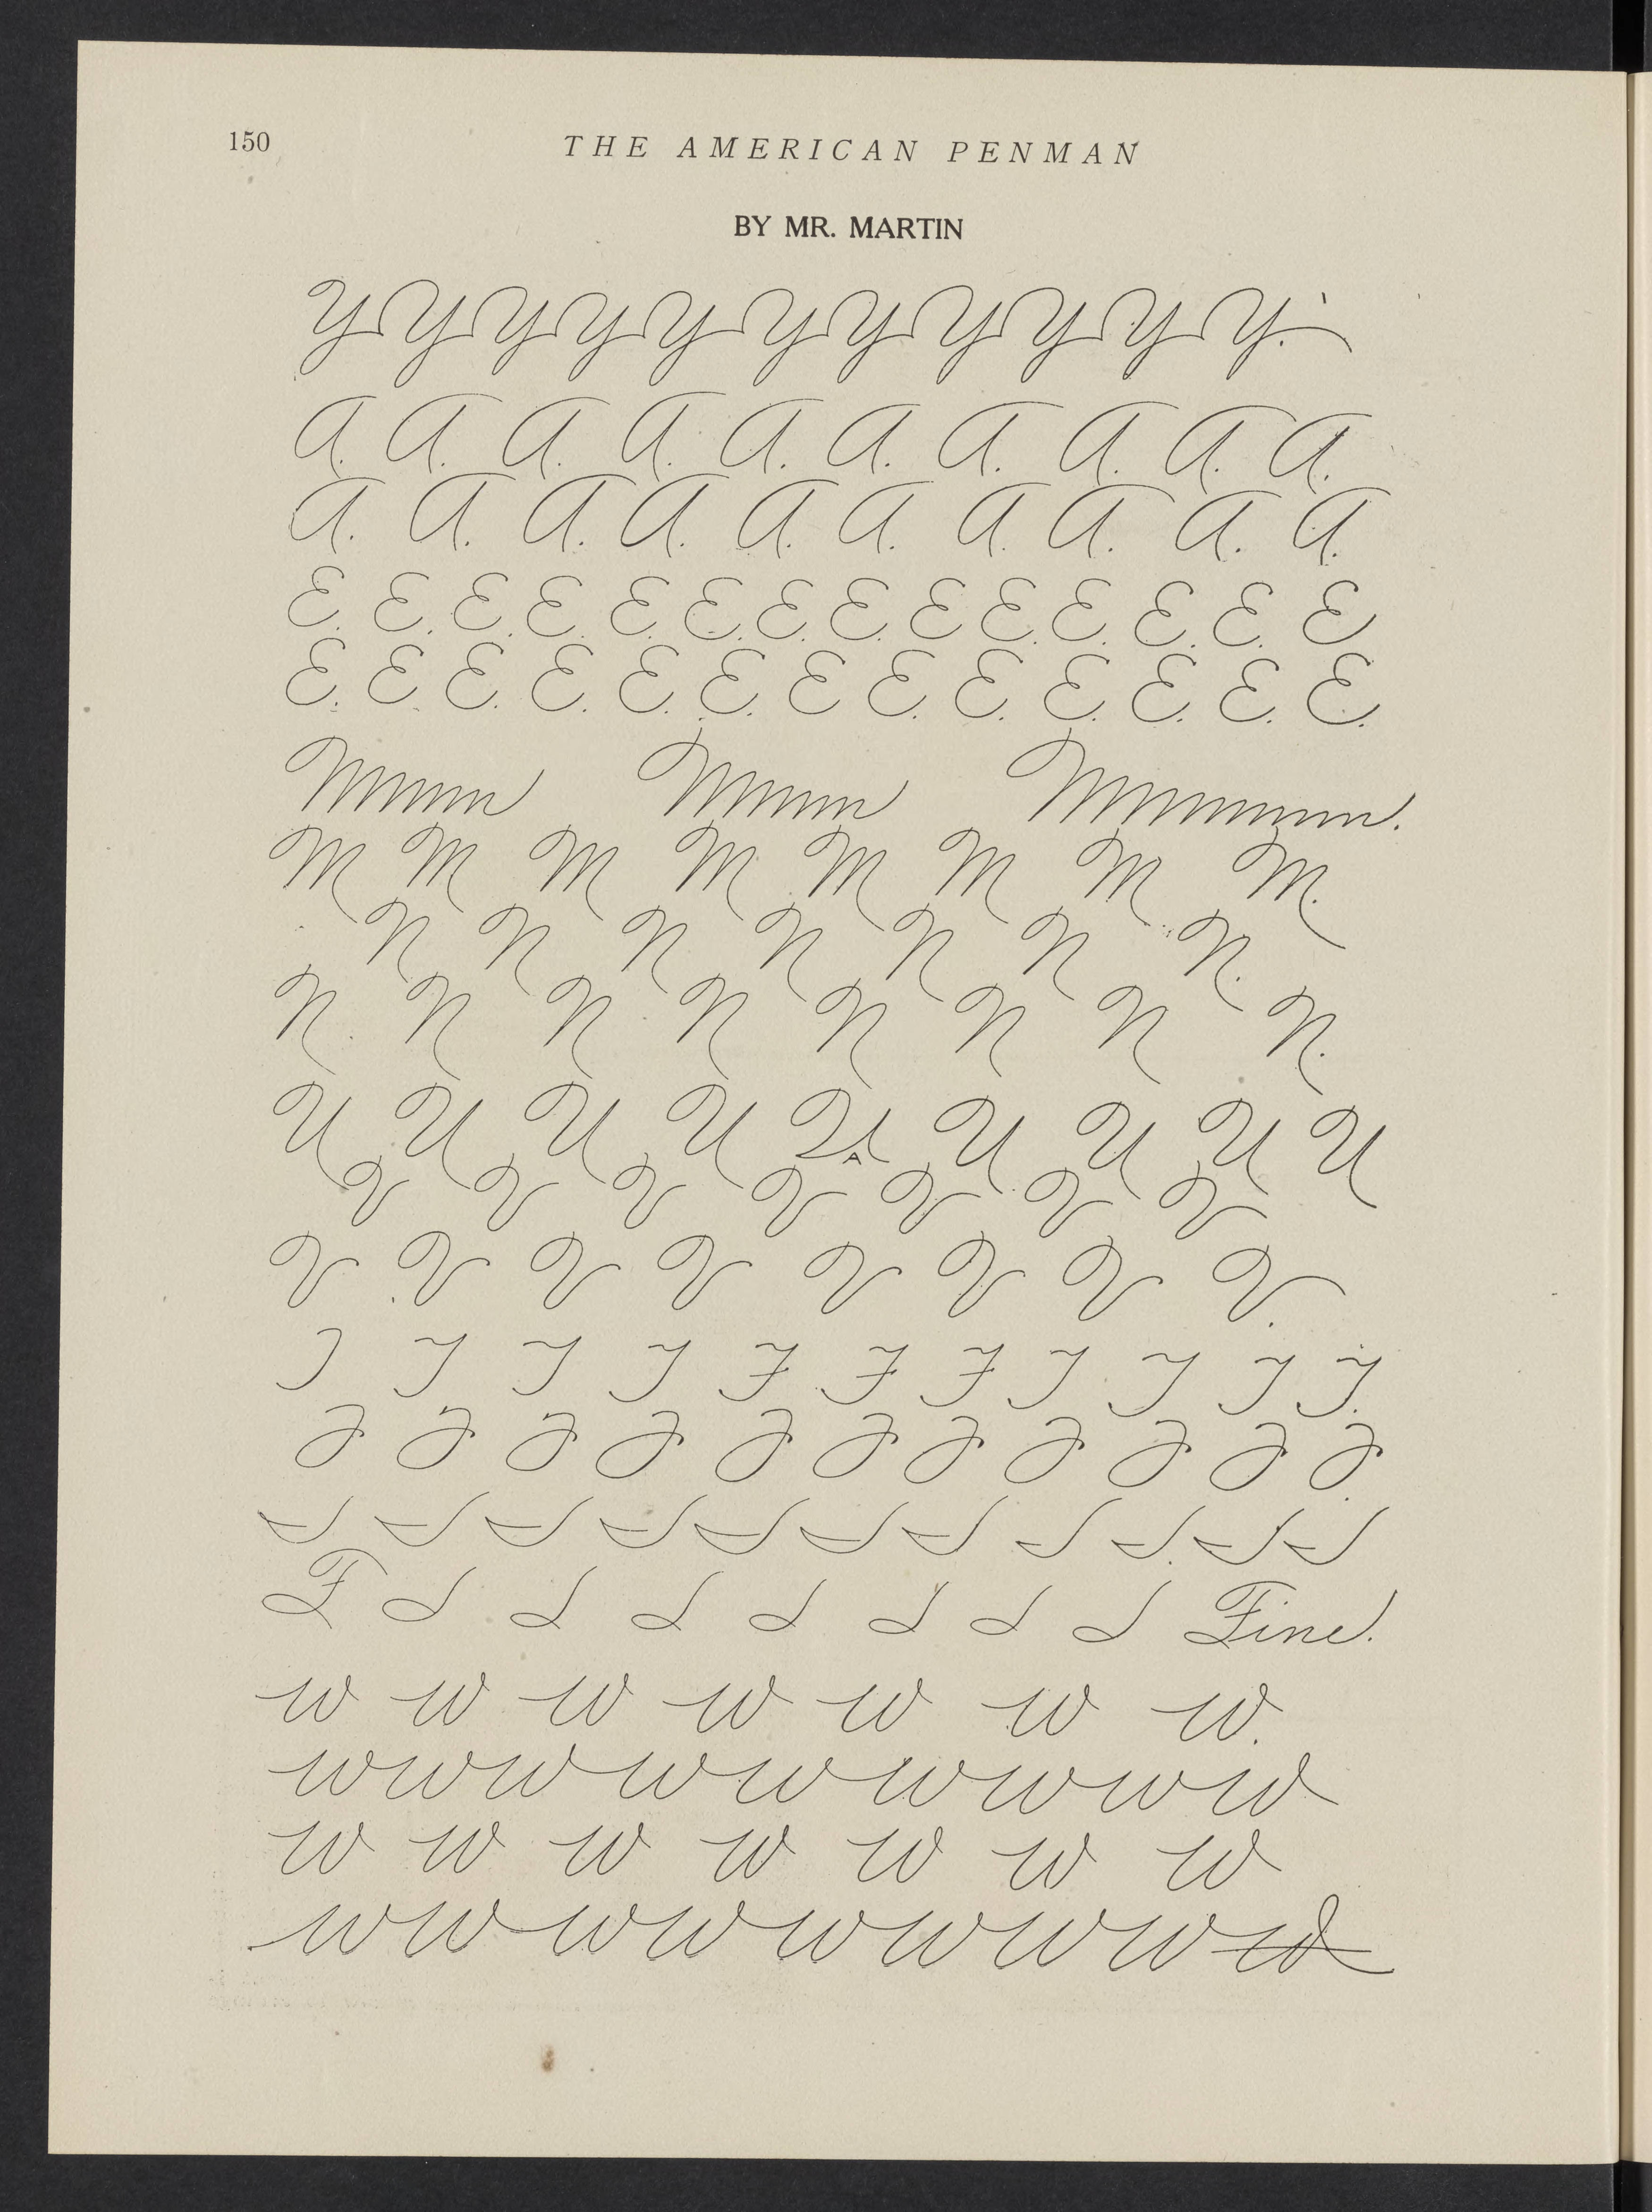 150
THE AMERICAN PENMAN
BY MR. MARTIN
Y Y Y Y Y Y Y Y Y Y Y.
A. A. A. A. A. A. A. A. A. A.
A. A. A. A. A. A. A. A. A. A.
E. E. E. E. E. E. E. E. E. E. E. E. E. E
E. E E. E. E. E. E E. E. E. E. E. E.
Mmmm Mmmm Mmmmmm.
M M M M M M M M.
N N N N N N N.
N. N N N N N N N.
U U U U U U U U
V V V V V V V
V V V V V V V V.
F F F
F Fine.
W W W W W W W.
W W W W W W W W W
W W W W W W W
W W W W W W W W W